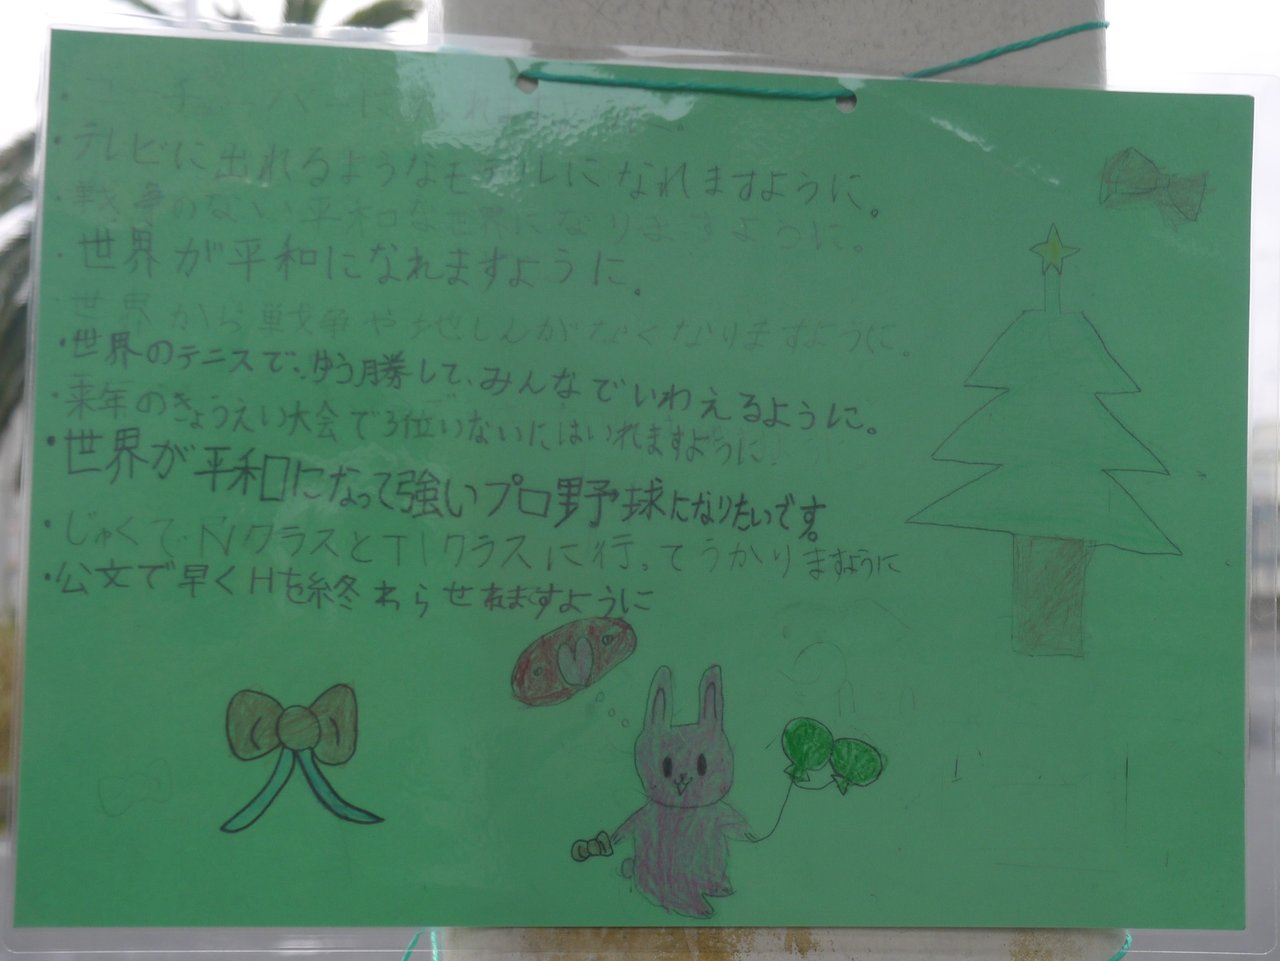 ・テレビに出れるようなモデルになれますように。
・戦争のない平和な世界になりますように。
・世界が平和になれますように。
・世界から戦争や地しんがなくなりますように。
・世界のテニスで、ゆう勝して、みんなでいわえるように。
・来年のきょうえい大会で3位いないにはいれますように。
・世界が平和になって強いプロ野球になりたいです。
・じゅくでNクラスとT1クラスに行ってうかりますように
・公文で早くHを終わらせれますように